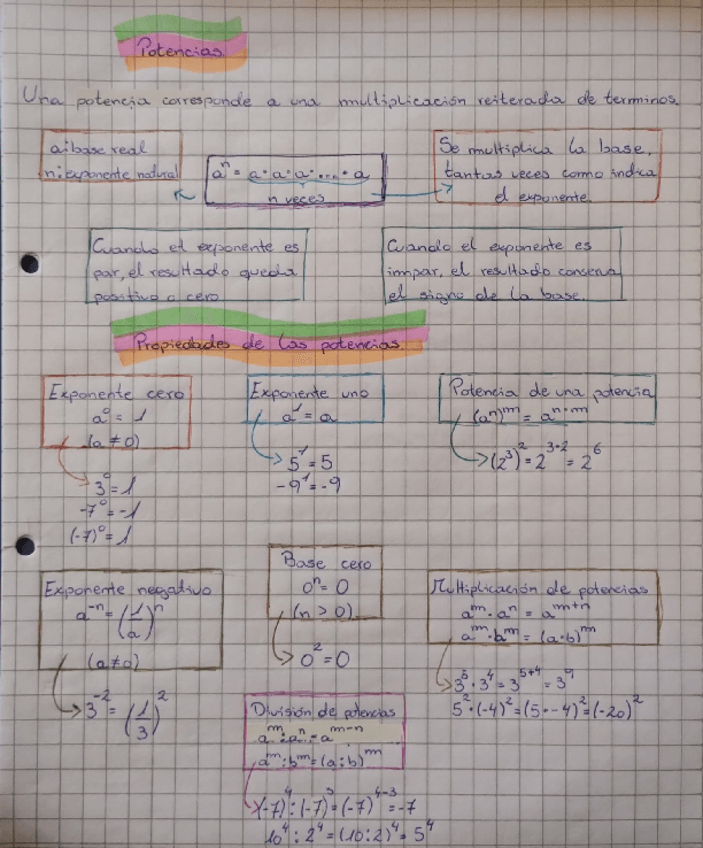 Potencias
Una potencia corresponde a una multiplicación reiterada de terminos.
a: base real
n: exponente natural
aⁿ = a · a · a · .... · a
n veces
Se multiplica la base,
tantas veces como indica
el exponente.
Cuando el exponente es
par, el resultado queda
positivo o cero
Cuando el exponente es
impar, el resultado conserva
el signo de la base.
Propiedades de las potencias
Exponente cero
a⁰ = 1
(a ≠ 0)
3⁰ = 1
-7⁰ = -1
(-7)⁰ = 1
Exponente uno
a¹ = a
5¹ = 5
-9¹ = -9
Potencia de una potencia
(aⁿ)ᵐ = aⁿ˙ᵐ
(2³)² = 2³˙² = 2⁶
Exponente negativo
a⁻ⁿ = (1/a)ⁿ
(a ≠ 0)
3⁻² = (1/3)²
Base cero
0ⁿ = 0
(n > 0)
0² = 0
Multiplicación de potencias
aᵐ · aⁿ = aᵐ⁺ⁿ
aᵐ · bᵐ = (a · b)ᵐ
3⁵ · 3⁴ = 3⁵⁺⁴ = 3⁹
5² · (-4)² = (5 · -4)² = (-20)²
División de potencias
aᵐ : aⁿ = aᵐ⁻ⁿ
aᵐ : bᵐ = (a : b)ᵐ
(-7)⁴ : (-7)³ = (-7)⁴⁻³ = -7
10⁴ : 2⁴ = (10 : 2)⁴ = 5⁴